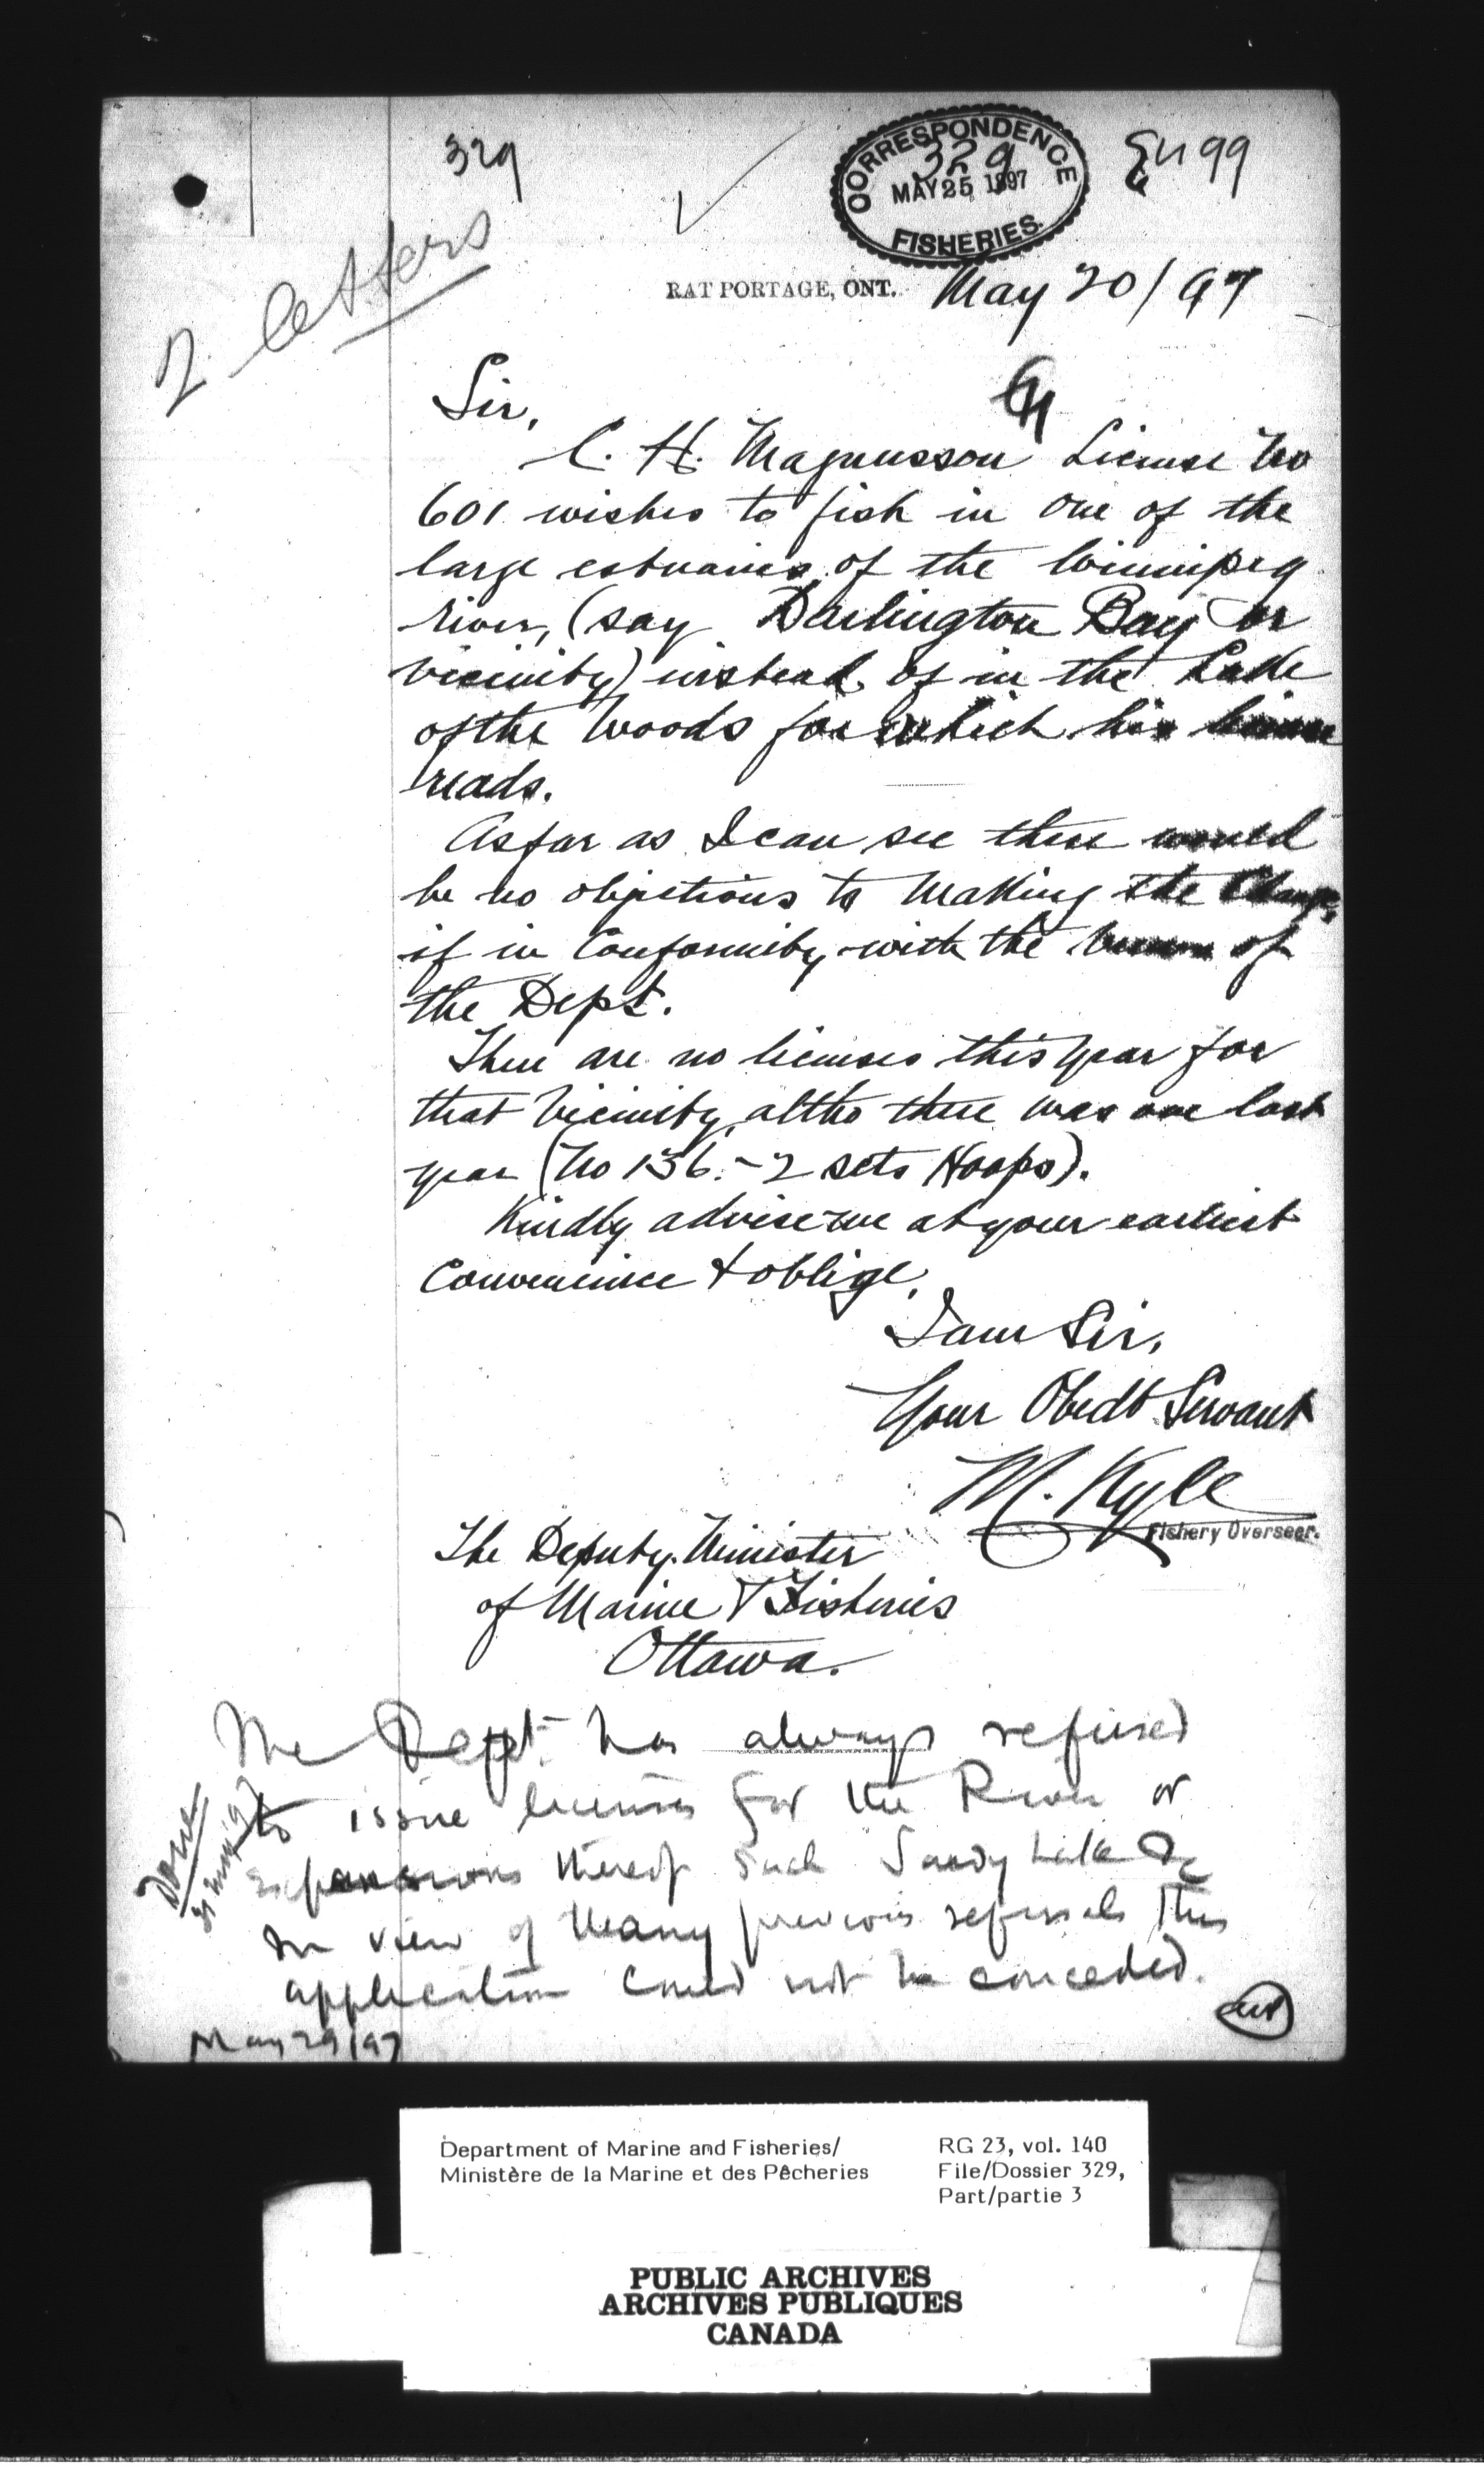 329
CORRESPONDENCE
329
MAY 25 1897
FISHERIES.
99
2 letters
RAT PORTAGE, ONT. May 20/97
Sir,
C. H. Magnusson License No
601 wishes to fish in one of the
large estuaries of the Winnipeg
river, (say Darlington Bay or
vicinity) instead of in the Lake
of the Woods for which his license
reads.
As far as I can see there would
be no objections to making the change,
if in conformity with the of
the Dept.
There are no licenses this year for
that vicinity, altho there was one last
year (No 136. - 2 sets Hoops).
Kindly advise me at your earliest
convenience & oblige,
I am Sir,
Your Obedt Servant
M. Kyle
Fishery Overseer.
The Deputy Minister
of Marine & Fisheries
Ottawa.
The Dept. has always refused
to issue licenses for the River or
expansions thereof such Sandy Lake &c
In view of many previous refusals this
application could not be conceded.
May 29/97
Done
31 May 97
Department of Marine and Fisheries/
Ministère de la Marine et des Pêcheries
RG 23, vol. 140
File/Dossier 329,
Part/partie 3
PUBLIC ARCHIVES
ARCHIVES PUBLIQUES
CANADA